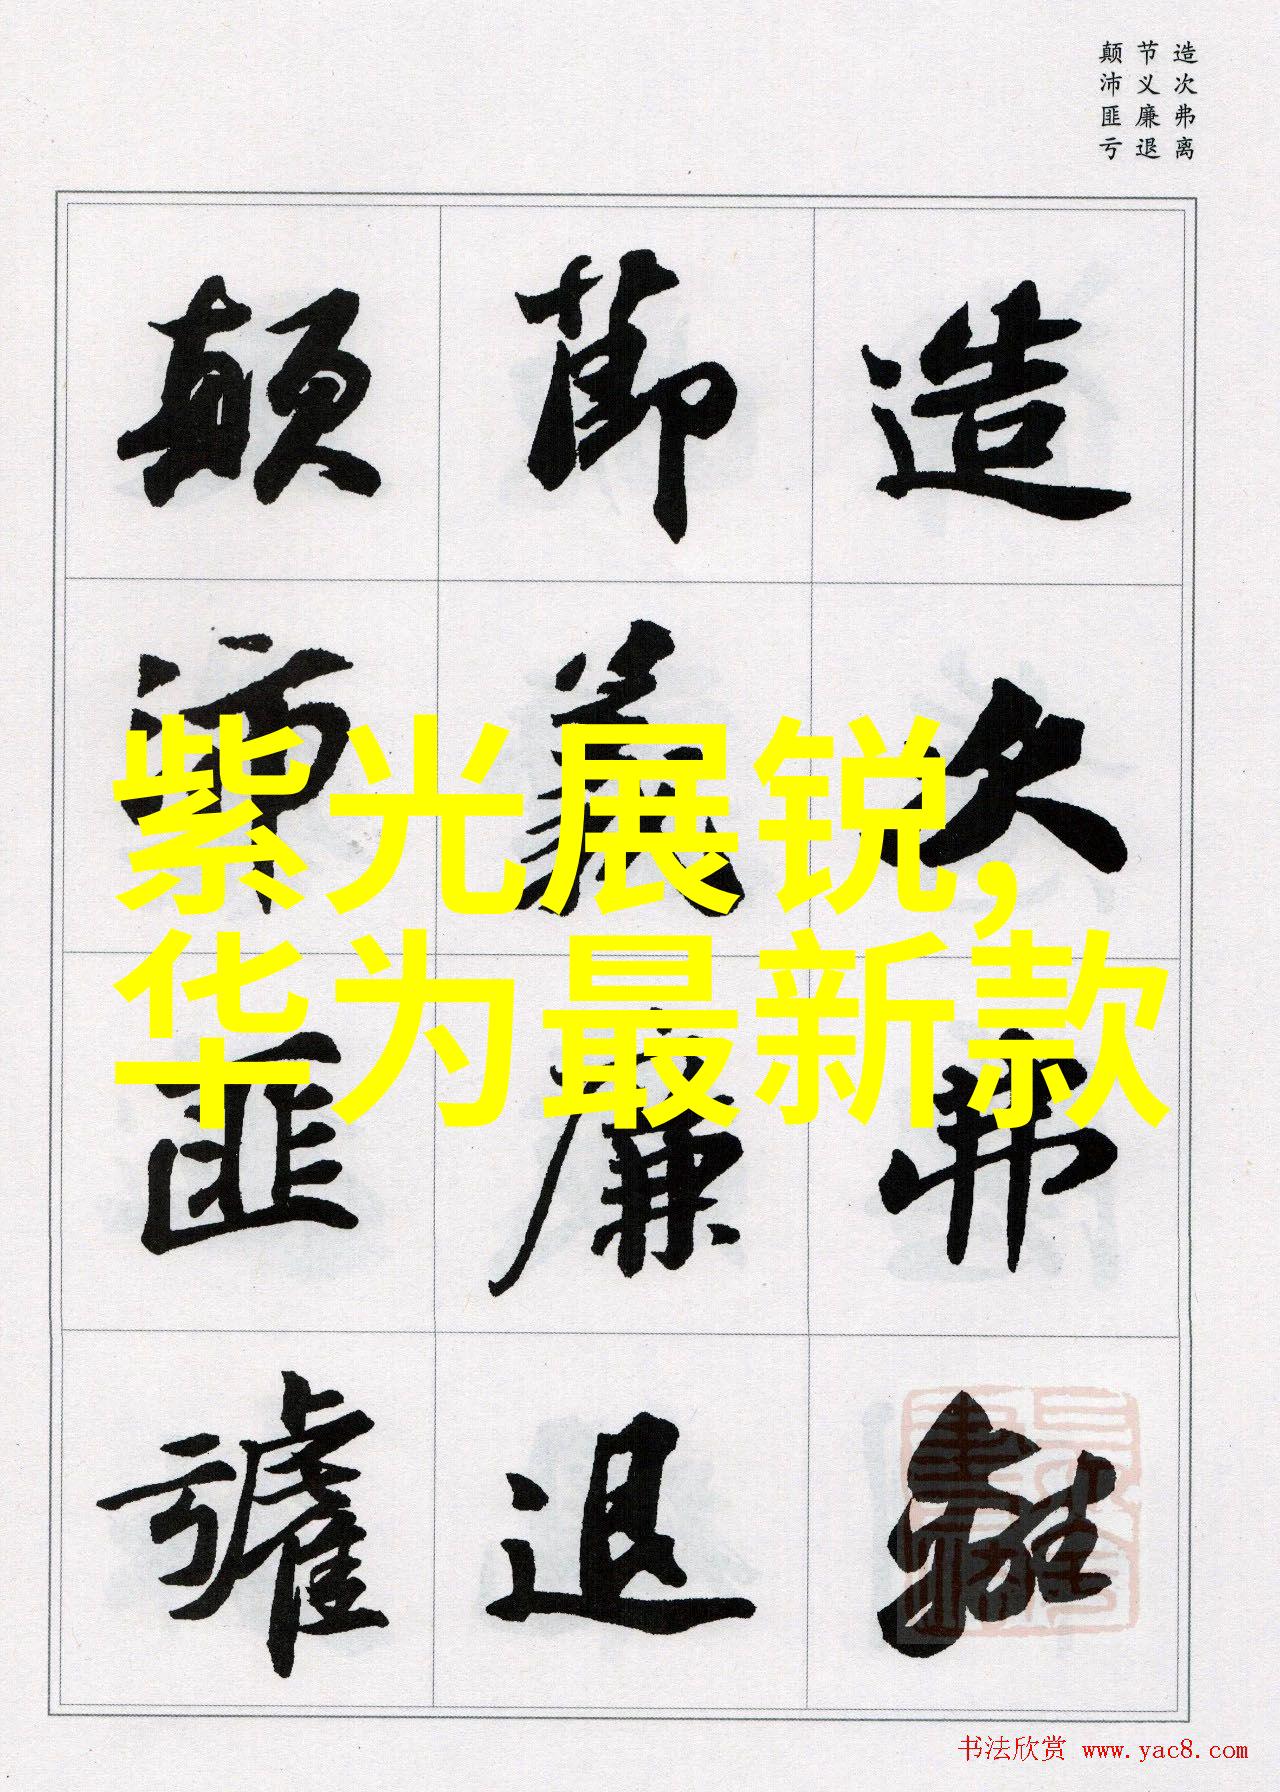 造次弗离
节义廉退
颠沛匪亏
造次弗離
節義廉退
顛沛匪虧
紫光展锐,
华为最新款
书法欣赏 www.yac8.com